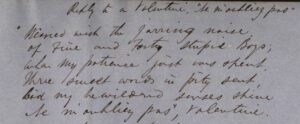 Reply to a Valentine, "Ne m'oubliez pas"
"Wearied with the jarring noise
of Five and forty stupid Boys;
When my patience just was spent,
Three sweet words in pity sent,
Bid my bewildered senses shine
"Ne m'oubliez pas", Valentine.